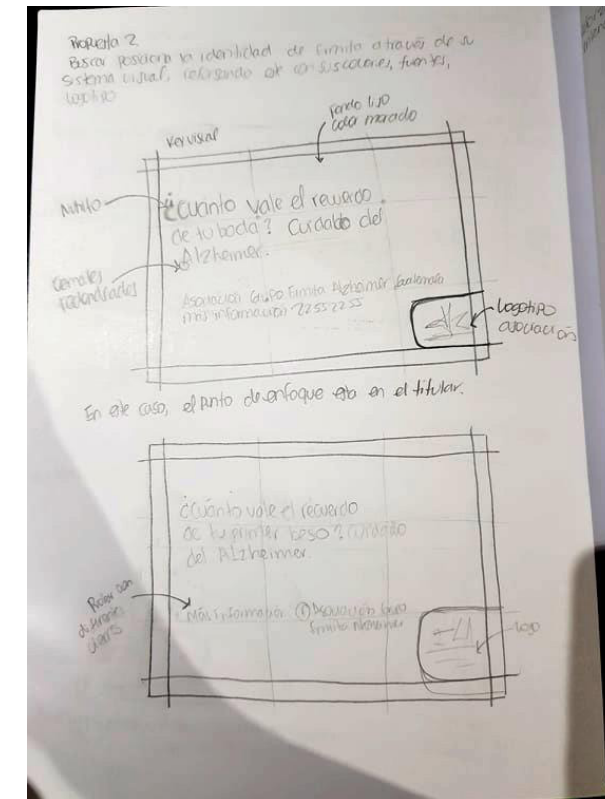 Propuesta 2
Buscar posiciona la identidad de Ermita a través de su
sistema visual, con sus colores, fuentes,
logotipo
Key visual
fondo liso
color morado
¿Cuánto vale el recuerdo
de tu boda? Cuidado del
Alzheimer.
redondeados
Asociación Grupo Ermita Alzheimer Guatemala
más información 22552255
Logotipo
asociación
En este caso, el punto de enfoque esta en el titular.
¿Cuánto vale el recuerdo
de tu primer beso? Cuidado
del Alzheimer.
Más información Asociación Grupo
Ermita Alzheimer
Logo